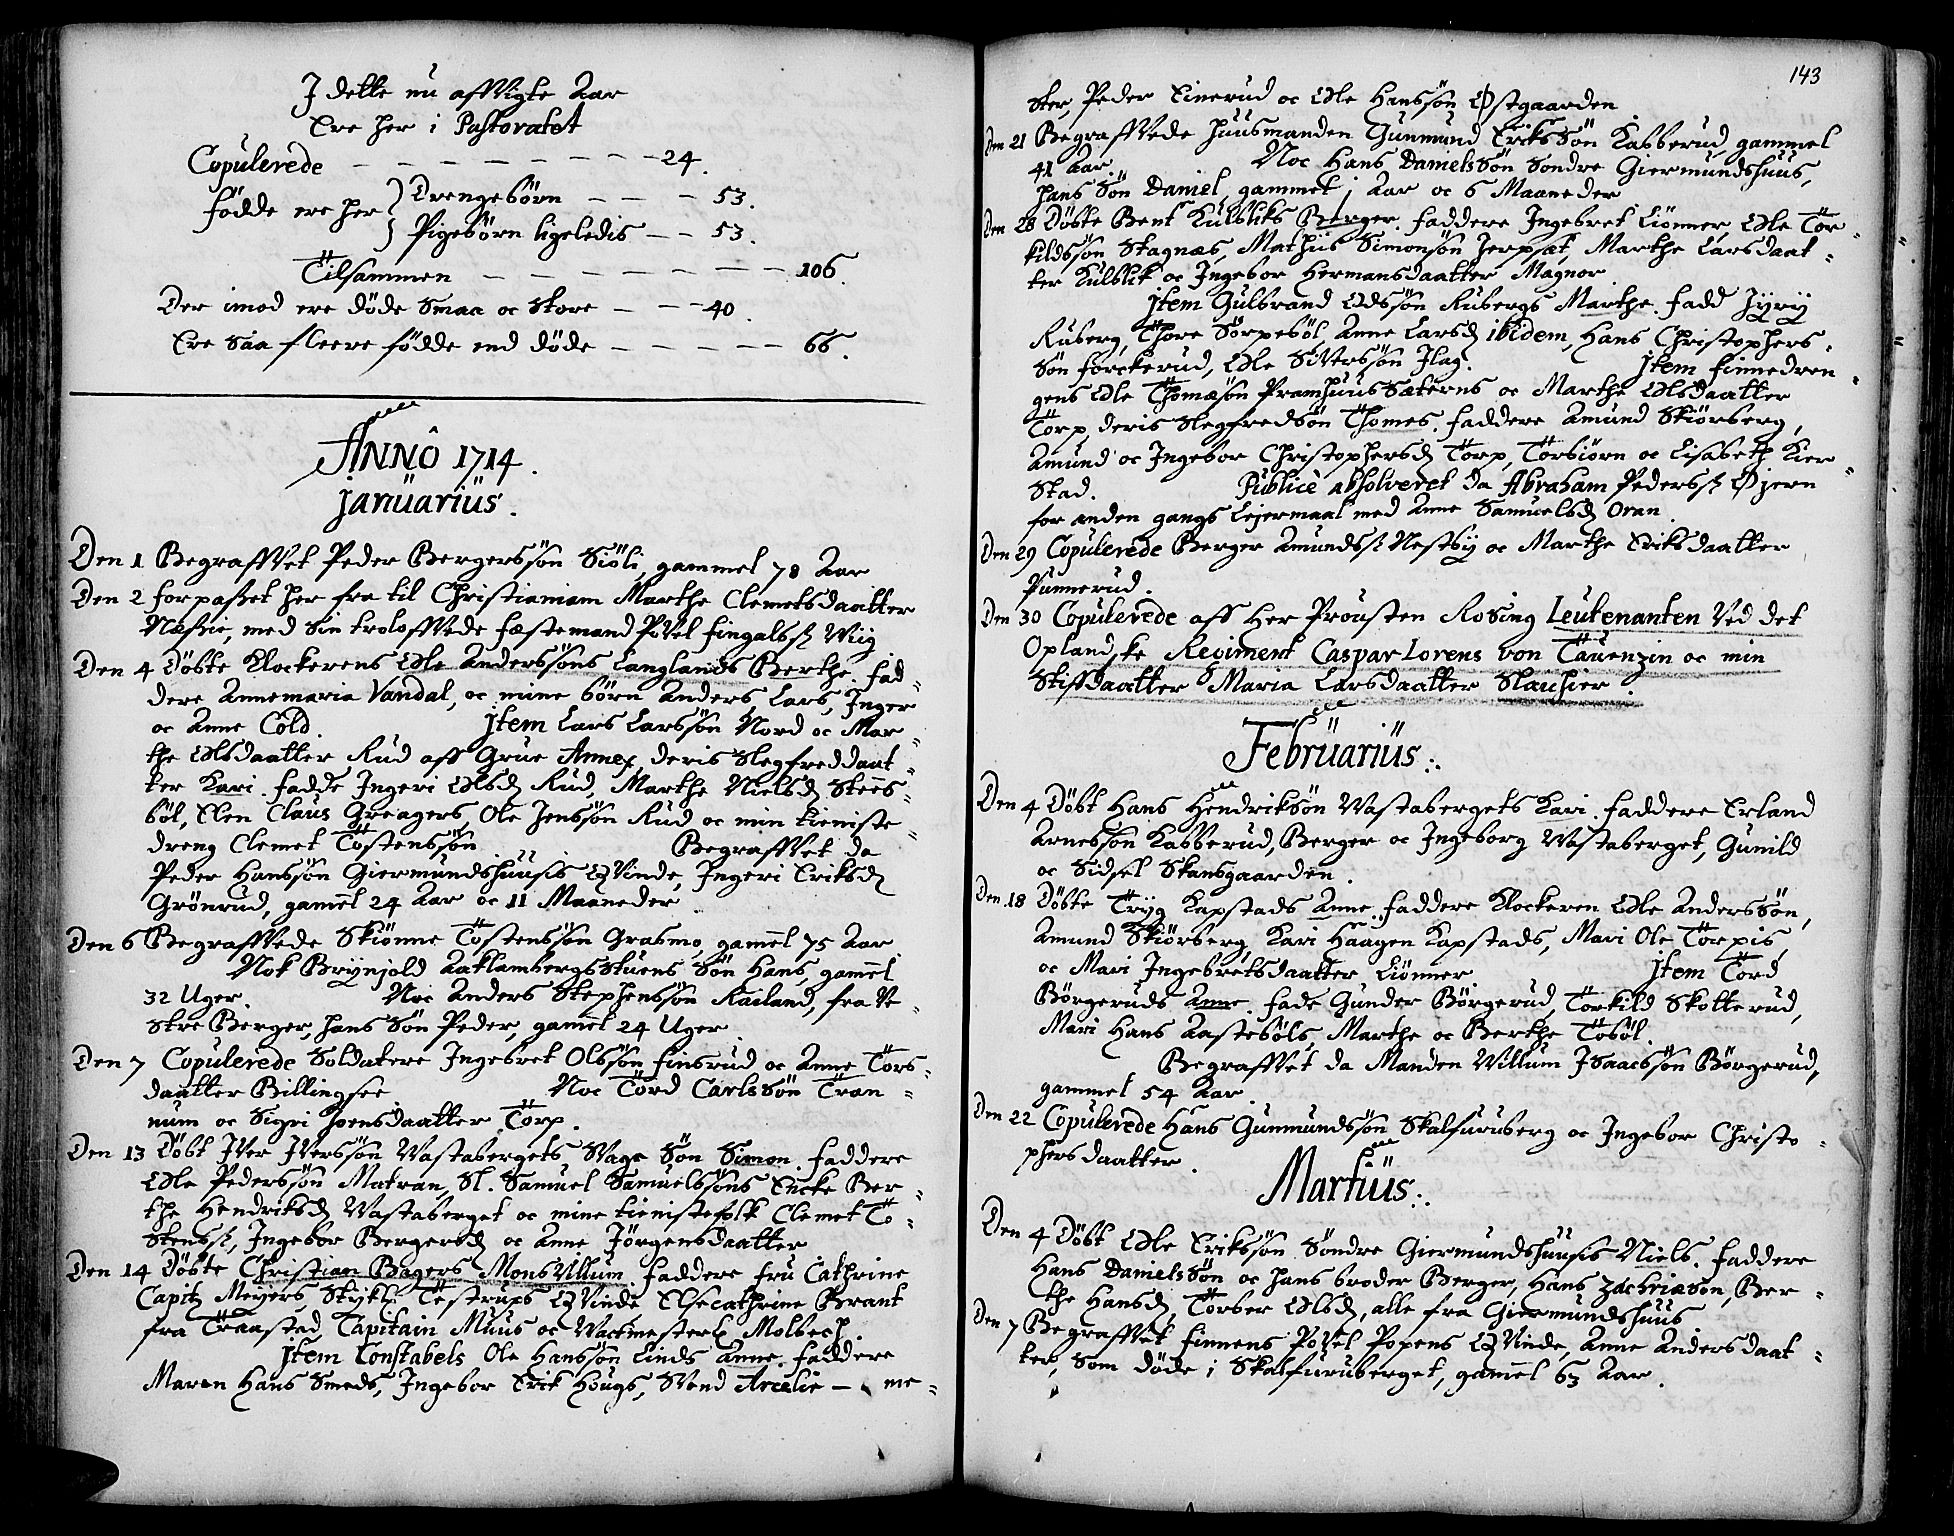 J dette nu affVigte Aar
Ere her i Pastoratet
Copulerede — — — — — — — — 24.
födde ere her } Drengebörn — — — 53.
} Pigebörn ligeledis — — 53.
Tilsammen — — — — — — — — 106.
Der imod ere döde Smaa oc Store — — — 40.
Ere Saa fleere födde end döde — — — — — 66.
ANNO 1714.
januarius.
Den 1 BegraffVet Peder Bergerssön Siöli, gammel 78 Aar
Den 2 forpasset her fra til Christianiam Marthe Clemetsdaatter
Næssie, med Sin troloffVede fæstemand Povel fingalss: Wiig
Den 4 Döbte Klockerens Ole Anderssöns Langlands Berthe. fad-
dere Annemaria Vandal, oc mine börn Anders, Lars, Inger
oc Anne Cold. jtem Lars Larssön Nord oc Mar-
the Olsdaatter Rud aff Grue Annex, deris Slegfreddaat-
ter Kari. fadde Ingeri Olsd Rud, Marthe Nielsd Stees-
böl, Elen Claus Greagers, Ole Jenssön Rud oc min tieniste-
dreng Clemet Töstenssön BegraffVet da
Peder Hanssön Giermundshuusis QVinde, Ingeri Eriksd
Grönrud, gamel 24 Aar oc 11 Maaneder
Den 6 BegraffVede Skiönne Töstenssön Grasmo, gamel 75 Aar
Nok Brynjold Aaklambergsstuens Sön Hans, gamel
32 Uger. Noc Anders Stephenssön Railand, fra Ve-
stre Berger, hans Sön Peder, gamel 24 Uger
Den 7 Copulerede Soldatere Ingebret Olssön finsrud oc Anne Tors-
daatter Billingsee Noc Tord Carlssön Tran-
num oc Sigri Joensdaatter Torp.
Den 13 Döbt Iver Iverssön Vastabergets Svage Sön Simon. faddere
Ole Pederssön Matran, Sl. Samuel Samuelssöns Encke Ber-
the Hendriksd Vastaberget oc mine tienistefolk Clemet Tö-
stenss:, Ingebor Bergersd oc Anne Jörgensdaatter
Den 14 Döbte Christian Bagers MonsVillum. faddere fru Cathrine
Capit: Meyers, Stykl: Testrups QVinde Elsecathrine Brant
fra Traastad, Capitain Muus oc Wactmester Molbech.
Jtem Constabels Ole Hanssön Linds Anne. faddere
Maren Hans Smeds, Ingebor Erik Hougs, Svend Arcelie — me-
143
ster, Peder Einerud oc Ole Hanssön Østgaarden
Den 21 BegraffVede huusmanden Gunmund Erikssön Kabberud, gammel
41 Aar. Noc Hans Danielssön Sondre Giermundshuus,
hans Sön Daniel, gammel 1 Aar oc 6 Maaneder
Den 28 Döbte Bent Kulbliks Berger. faddere Ingebret Liönner, Ole Tor-
kildssön Stagnæs, Mathiis Simonsön Jerpset, Marthe Larsdaat-
ter Kulblik oc Ingebor Hermansdaatter Magnor
jtem Gulbrand Olssön Rubergs Marthe. fadd Jyry
Ruberg, Thore Sörpeböl, Anne Larsd ibidem, Hans Christophers-
Sön forckerud, Ole Siverssön Jlag. jtem finnedren-
gens Ole Thomæsön Pramhuussæterns oc Marthe Olsdaatter
Torp deris Slegfredsön Thomes. faddere Amund Skiörberg,
Amund oc Ingebor Christophersd Torp, Torbiörn oc Lisabeth Kier-
stad. Publicè absolveret da Abraham Pederss: Øjern
for anden gangs Lejermaal med Anne Samuelsd Oran
Den 29 Copulerede Berger Amundss: Nestby oc Marthe Eriksdaatter
Punnerud.
Den 30 Copulerede aff Her Prousten Rosing Leutenanten Ved det
Oplandske Regiment Caspar Lorens von Tauenzin oc min
Stiffdaatter Maria Larsdaatter Slauhier.
Februarius:.
Den 4 Döbt Hans Hendriksön Vastabergets Kari. faddere Erland
Arnessön Kabberud, Berger oc Ingeborg Vastaberget, Gunild
oc Sidsel Skansgaarden.
Den 18 Döbte Tryg Kapstads Anne. faddere Klockeren Ole Anderssön,
Amund Skiörberg, Kari Haagen Kapstads, Mari Ole Torpis,
oc Mari Ingebretsdaatter Liönner jtem Tord
Börgeruds Anne. fade Gunder Börgerud, Torkild Skotterud,
Mari Hans Aasteböls, Marthe oc Berthe Toböl.
BegraffVet da Manden Villum Isaacssön Börgerud,
gammel 54 Aar.
Den 22 Copulerede Hans Gunmundssön Skalfuruberg oc Ingebor Christo-
phersdaatter.
Martius:.
Den 4 Döbt Ole Erikssön Söndre Giermundshuusis Niels. faddere
Hans Danielssön oc hans broder Berger, Hans Zachriasön, Ber-
the Hansd, Torber Olsd, alle fra Giermundshuus
Den 7 BegraffVet finnens Povel Popens QVinde, Anne Andersdaat-
ter, som döde i Skalfuruberget, gamel 63 Aar.